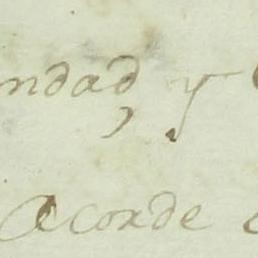 ndad, y
Acorde